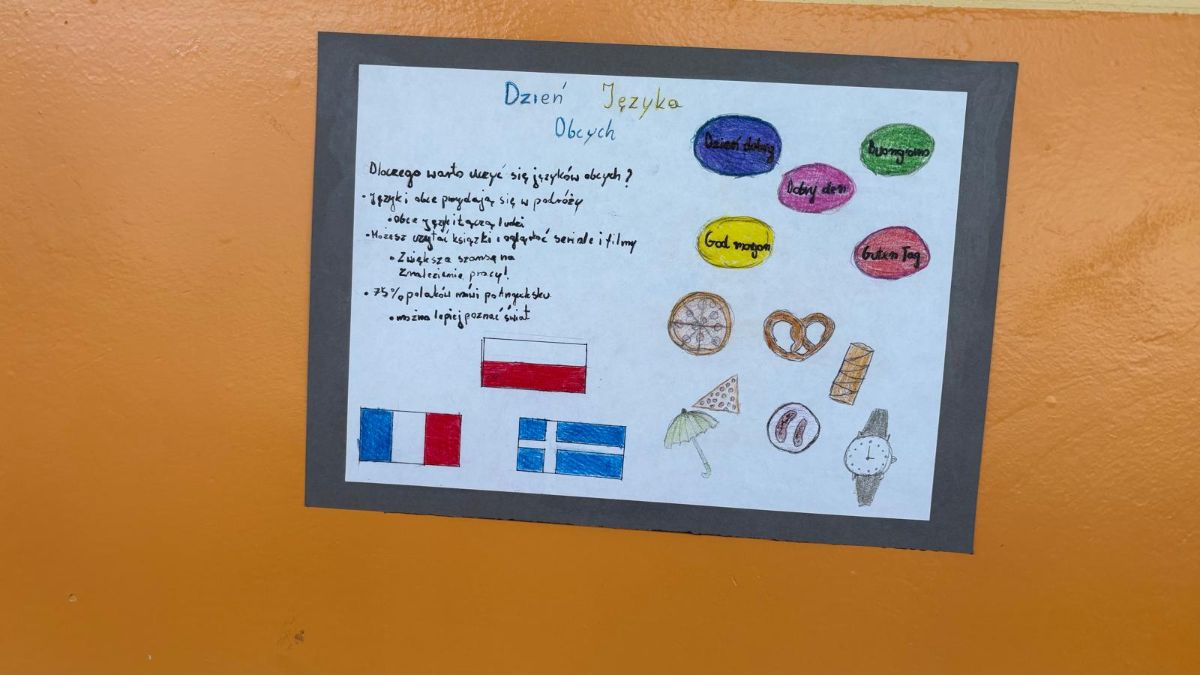 Dzień Języka
Obcych
Dlaczego warto uczyć się języków obcych?
• Języki obce przydają się w podróży
• Obce języki łączą ludzi
• Możesz czytać książki i oglądać seriale i filmy
• Zwiększa szansę na
znalezienie pracy!
• 75% polaków mówi po Angielsku
• można lepiej poznać świat
Dzień dobry
Buongiorno
Dobrý den
God morgon
Guten Tag